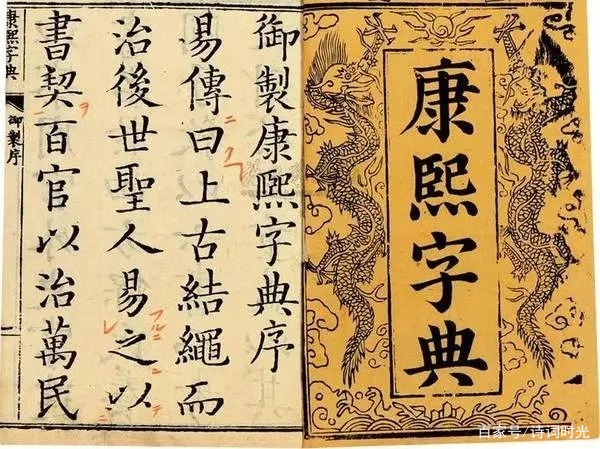 康熙字典
御製康熙字典序
易傳曰上古結繩而
治後世聖人易之以
書契百官以治萬民
康熙字典
御製序
百家号/诗词时光